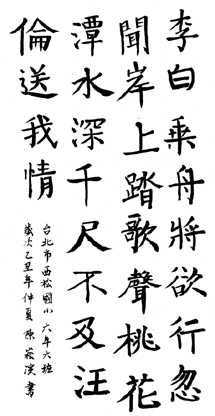 李白乘舟將欲行忽
聞岸上踏歌聲桃花
潭水深千尺不及汪
倫送我情
台北市西松國小六年六班
歲次乙丑年仲夏 陳 漢書